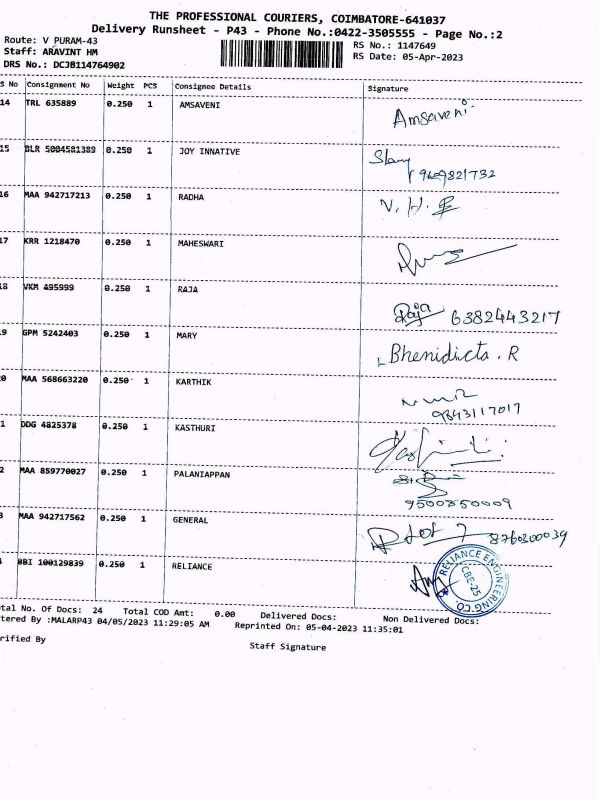 THE PROFESSIONAL COURIERS, COIMBATORE-641037
Delivery Runsheet - P43 - Phone No.:0422-3505555 - Page No.:2
Route: V PURAM-43
RS No.: 1147649
Staff: ARAVINT HM
RS Date: 05-Apr-2023
DRS No.: DCJB114764902
S No Consignment No Weight PCS Consignee Details Signature
14 TRL 635889 0.250 1 AMSAVENI Amsaveni
15 BLR 5004581389 0.250 1 JOY INNATIVE
9609821732
16 MAA 942717213 0.250 1 RADHA V. H.
17 KRR 1218470 0.250 1 MAHESWARI
18 VKM 495999 0.250 1 RAJA Raja 6382443217
9 GPM 5242403 0.250 1 MARY Bhenidicta. R
0 MAA 568663220 0.250 1 KARTHIK
9843117017
1 DDG 4825378 0.250 1 KASTHURI
2 MAA 859770027 0.250 1 PALANIAPPAN
9500850009
3 MAA 942717562 0.250 1 GENERAL 8760300039
BBI 100129839 0.250 1 RELIANCE
RELIANCE ENGINEERING CO.
CBE-25
tal No. Of Docs: 24 Total COD Amt: 0.00 Delivered Docs: Non Delivered Docs:
tered By :MALARP43 04/05/2023 11:29:05 AM Reprinted On: 05-04-2023 11:35:01
rified By
Staff Signature